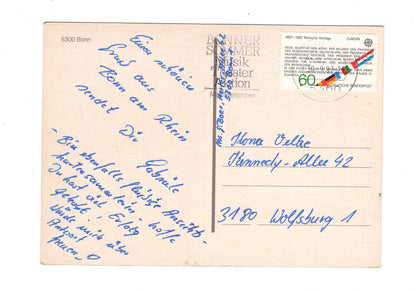 5300 Bonn
Einen schönen
Gruß aus
Bonn am Rhein
sendet Dir
Gabriele
- Bin ebenfalls fleißige Ansichts-
kartensammlerin - hoffe
Du hast viel Erfolg
gehabt!
Würde mich über
Antwort
freuen
BONNER
SOMMER
Musik
Theater
Aktion
Mai-September
1957-1982 Römische Verträge
EUROPA
60
DEUTSCHE BUNDESPOST
Ilona Velke
Kennedy-Allee 42
3180 Wolfsburg 1